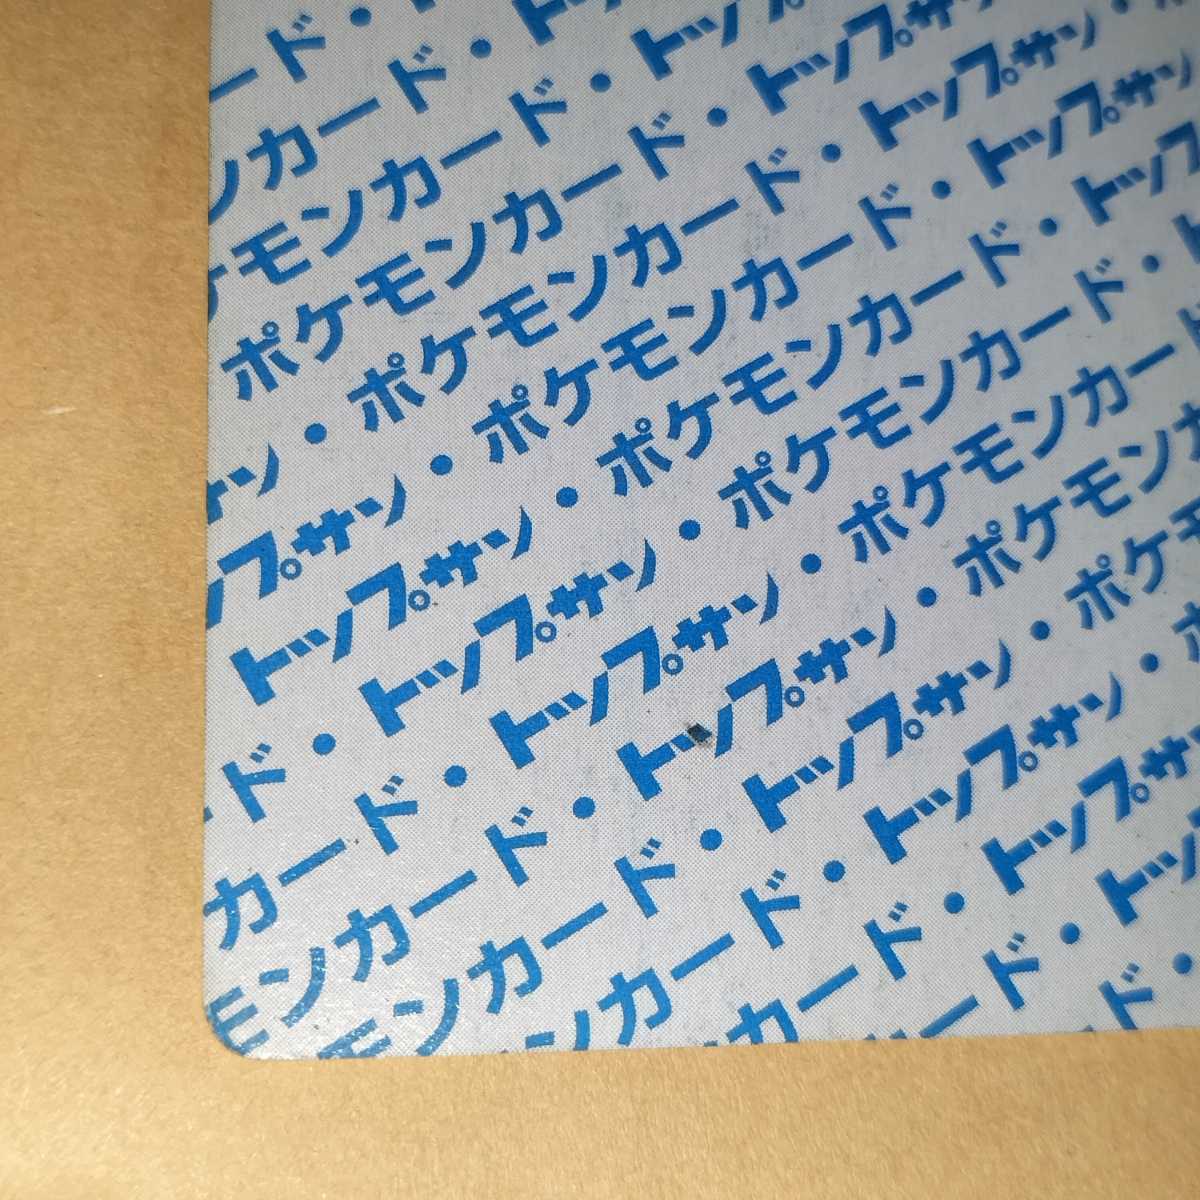 ード・
ンカード・ト
ケモンカード・トップ
ポケモンカード・トップサ
サン・ポケモンカード・トップサン・
ップサン・ポケモンカード・トップサン
トップサン・ポケモンカード・トップ
ード・トップサン・ポケモンカード・ト
カード・トップサン・ポケモンカード
モンカード・トップサン・ポケモンカ
モンカード・トップサン・ポケモ
ンカード・トップサン・ポ
カード・トップサ
ード・トッ
ド・